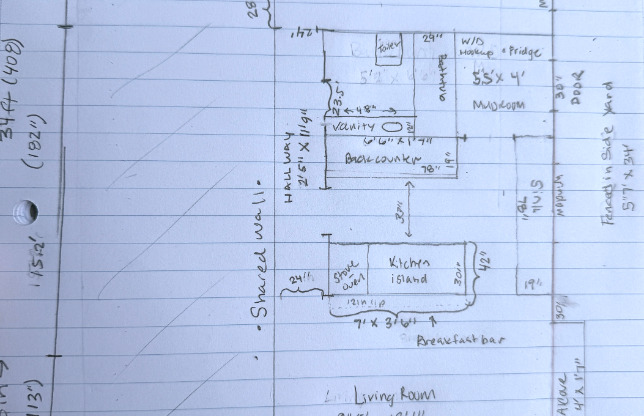 28
34ft (408)
(182")
15.2'
113")
24"
Toilet
29"
W/D
Hookup + Fridge
5.5' X 4'
MUDROOM
30"
DOOR
3.5'
48"
Vanity
6'6" X 1'7"
Back counter
78"
19"
HALLWAY
2'5" X 11'9"
Shared wall
Fenced in Side yard
5'7' X 34'
78"
19"
30"
24"
Stove
oven
Kitchen
island
30"
42"
12in lip
7' X 3'6"
Breakfast bar
30"
Living Room
Alcove
4' X 1'7"